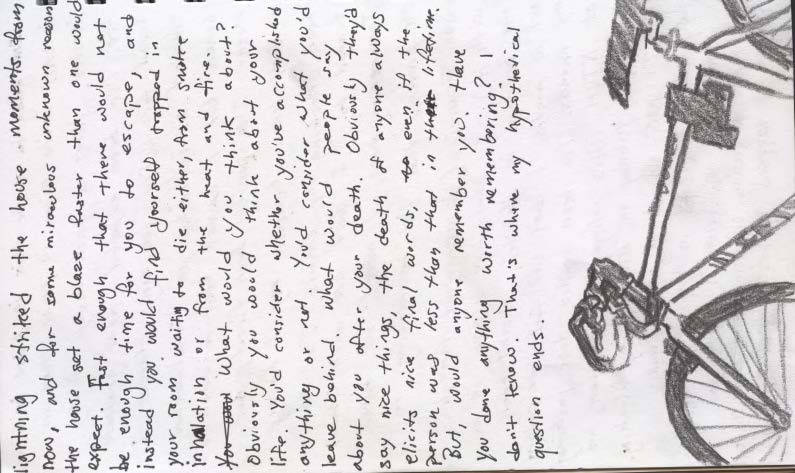 lightning striked the house moments from
now, and for some miraculous unknown reason
the house set a blaze faster than one would
expect. Fast enough that there would not
be enough time for you to escape, and
instead you would find yourself trapped in
your room waiting to die either, from smoke
inhalation or from the heat and fire.
What would you think about?
Obviously you would think about your
life. You'd consider whether you've accomplished
anything or not. You'd consider what you'd
leave behind, what would people say
about you after your death. Obviously they'd
say nice things, the death of anyone always
elicits nice final words, even if the
person was less than that in lifetime.
But, would anyone remember you. Have
you done anything worth remembering? I
don't know. That's where my hypothetical
question ends.